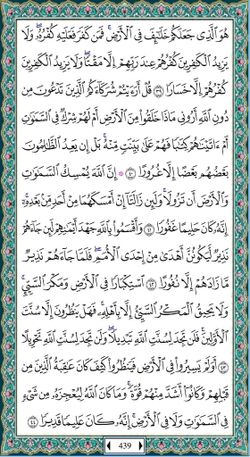 هُوَ ٱلَّذِى جَعَلَكُمْ خَلَٰٓئِفَ فِى ٱلْأَرْضِ ۚ فَمَن كَفَرَ فَعَلَيْهِ كُفْرُهُۥ ۖ وَلَا
يَزِيدُ ٱلْكَٰفِرِينَ كُفْرُهُمْ عِندَ رَبِّهِمْ إِلَّا مَقْتًا ۖ وَلَا يَزِيدُ ٱلْكَٰفِرِينَ
كُفْرُهُمْ إِلَّا خَسَارًا ٣٩ قُلْ أَرَءَيْتُمْ شُرَكَآءَكُمُ ٱلَّذِينَ تَدْعُونَ مِن
دُونِ ٱللَّهِ أَرُونِى مَاذَا خَلَقُوا۟ مِنَ ٱلْأَرْضِ أَمْ لَهُمْ شِرْكٌ فِى ٱلسَّمَٰوَٰتِ
أَمْ ءَاتَيْنَٰهُمْ كِتَٰبًا فَهُمْ عَلَىٰ بَيِّنَتٍ مِّنْهُ ۚ بَلْ إِن يَعِدُ ٱلظَّٰلِمُونَ
بَعْضُهُم بَعْضًا إِلَّا غُرُورًا ٤٠ إِنَّ ٱللَّهَ يُمْسِكُ ٱلسَّمَٰوَٰتِ
وَٱلْأَرْضَ أَن تَزُولَا ۚ وَلَئِن زَالَتَآ إِنْ أَمْسَكَهُمَا مِنْ أَحَدٍ مِّنۢ بَعْدِهِۦٓ ۚ
إِنَّهُۥ كَانَ حَلِيمًا غَفُورًا ٤١ وَأَقْسَمُوا۟ بِٱللَّهِ جَهْدَ أَيْمَٰنِهِمْ لَئِن جَآءَهُمْ
نَذِيرٌ لَّيَكُونُنَّ أَهْدَىٰ مِنْ إِحْدَى ٱلْأُمَمِ ۖ فَلَمَّا جَآءَهُمْ نَذِيرٌ
مَّا زَادَهُمْ إِلَّا نُفُورًا ٤٢ ٱسْتِكْبَارًا فِى ٱلْأَرْضِ وَمَكْرَ ٱلسَّيِّئِ ۚ
وَلَا يَحِيقُ ٱلْمَكْرُ ٱلسَّيِّئُ إِلَّا بِأَهْلِهِۦ ۚ فَهَلْ يَنظُرُونَ إِلَّا سُنَّتَ
ٱلْأَوَّلِينَ ۚ فَلَن تَجِدَ لِسُنَّتِ ٱللَّهِ تَبْدِيلًا ۖ وَلَن تَجِدَ لِسُنَّتِ ٱللَّهِ تَحْوِيلًا
٤٣ أَوَلَمْ يَسِيرُوا۟ فِى ٱلْأَرْضِ فَيَنظُرُوا۟ كَيْفَ كَانَ عَٰقِبَةُ ٱلَّذِينَ مِن
قَبْلِهِمْ وَكَانُوٓا۟ أَشَدَّ مِنْهُمْ قُوَّةً ۚ وَمَا كَانَ ٱللَّهُ لِيُعْجِزَهُۥ مِن شَىْءٍ
فِى ٱلسَّمَٰوَٰتِ وَلَا فِى ٱلْأَرْضِ ۚ إِنَّهُۥ كَانَ عَلِيمًا قَدِيرًا ٤٤
439